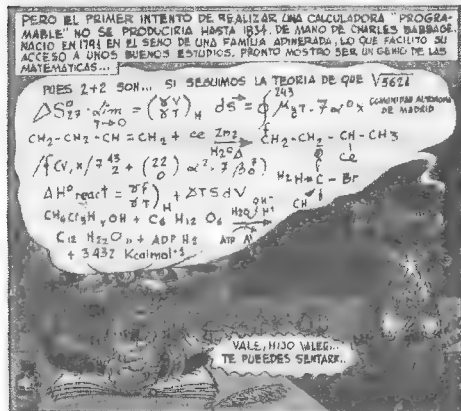 PERO EL PRIMER INTENTO DE REALIZAR UNA CALCULADORA "PROGRA-
MABLE" NO SE PRODUCIRIA HASTA 1834. DE MANO DE CHARLES BABBAGE.
NACIO EN 1791 EN EL SENO DE UNA FAMILIA ADINERADA, LO QUE FACILITO SU
ACCESO A UNOS BUENOS ESTUDIOS. PRONTO MOSTRO SER UN GENIO DE LAS
MATEMATICAS...
PUES 2+2 SON... SI SEGUIMOS LA TEORIA DE QUE √5621
243
COMUNIDAD AUTONOMA
DE MADRID
CH₂-CH₂-CH=CH₂ + ce Zn₂ H₂O Δ CH₂-CH₂-CH-CH₃
Ce
H₂H=C-Br
CH
ΔH° react = + ΔTSdV
OH + C₆ H₁₂ O₆ H₂O/H⁺ OH⁻
C₁₂ H₂₂O₁₁ + ADP H₂ ATP
+ 3432 Kcalmol⁻¹
VALE, HIJO VALE...
TE PUEEDES SENTAR..